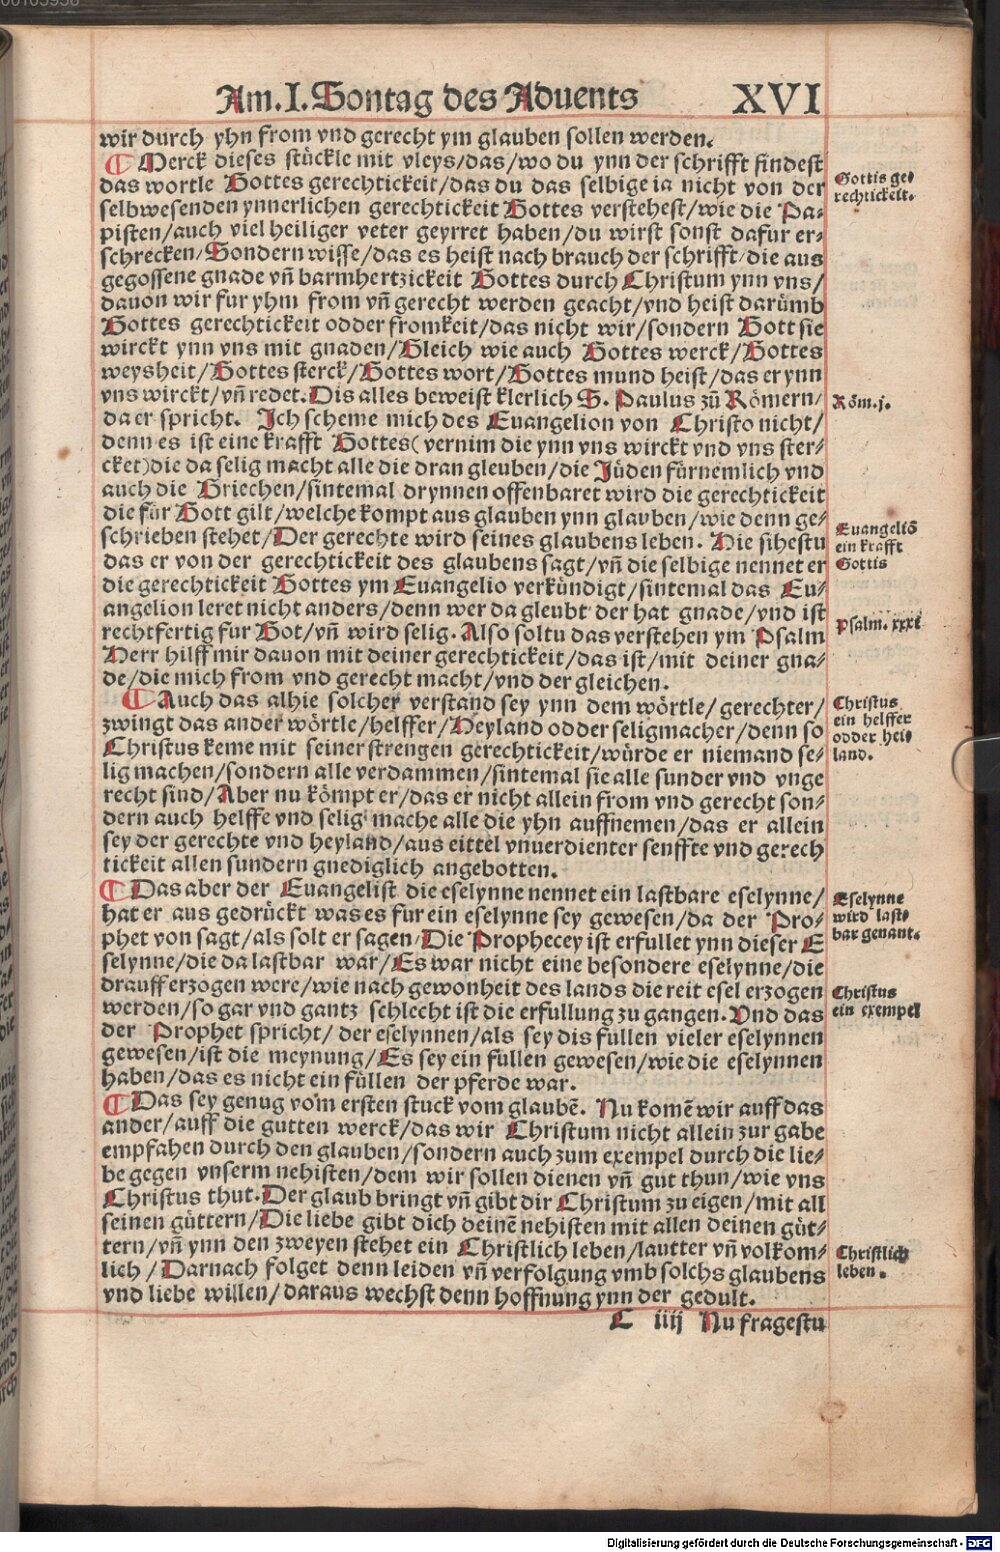 Am. I. Sontag des Aduents XVI
wir durch yhn from vnd gerecht ym glauben sollen werden.
¶ Merck dieses stückle mit vleys/das/wo du ynn der schrifft findest
das wortle Gottes gerechtickeit/das du das selbige ia nicht von der
selbwesenden ynnerlichen gerechtickeit Gottes verstehest/wie die Pa-
pisten/auch viel heiliger veter geyrret haben/du wirst sonst dafur er-
schrecken/Sondern wisse/das es heist nach brauch der schrifft/die aus
gegossene gnade vn̄ barmhertzickeit Gottes durch Christum ynn vns/
dauon wir fur yhm from vn̄ gerecht werden geacht/vnd heist darümb
Gottes gerechtickeit odder fromkeit/das nicht wir/sondern Gott sie
wirckt ynn vns mit gnaden/Gleich wie auch Gottes werck/Gottes
weysheit/Gottes sterck/Gottes wort/Gottes mund heist/das er ynn
vns wirckt/vn̄ redet. Dis alles beweist klerlich S. Paulus zů Römern/
da er spricht. Ich scheme mich des Euangelion von Christo nicht/
denn es ist eine krafft Gottes (vernim die ynn vns wirckt vnd vns ster-
cket) die da selig macht alle die dran gleuben/die Jüden fürnemlich vnd
auch die Griechen/sintemal drynnen offenbaret wird die gerechtickeit
die für Gott gilt/welche kompt aus glauben ynn glauben/wie denn ge-
schrieben stehet/Der gerechte wird seines glaubens leben. Hie sihestu
das er von der gerechtickeit des glaubens sagt/vn̄ die selbige nennet er
die gerechtickeit Gottes ym Euangelio verkündigt/sintemal das Eu-
angelion leret nicht anders/denn wer da gleubt der hat gnade/vnd ist
rechtfertig fur Got/vn̄ wird selig. Also soltu das verstehen ym Psalm
Herr hilff mir dauon mit deiner gerechtickeit/das ist/mit deiner gna-
de/die mich from vnd gerecht macht/vnd der gleichen.
¶ Auch das alhie solcher verstand sey ynn dem wörtle/gerechter/
zwingt das ander wörtle/helffer/Heyland odder seligmacher/denn so
Christus keme mit seiner strengen gerechtickeit/würde er niemand se-
lig machen/sondern alle verdammen/sintemal sie alle sunder vnd vnge
recht sind/Aber nu kömpt er/das er nicht allein from vnd gerecht son-
dern auch helffe vnd selig mache alle die yhn auffnemen/das er allein
sey der gerechte vnd heyland/aus eittel vnuerdienter senffte vnd gerech
tickeit allen sundern gnediglich angebotten.
¶ Das aber der Euangelist die eselynne nennet ein lastbare eselynne/
hat er aus gedrückt was es fur ein eselynne sey gewesen/da der Pro-
phet von sagt/als solt er sagen/Die Prophecey ist erfullet ynn dieser E
selynne/die da lastbar war/Es war nicht eine besondere eselynne/die
drauff erzogen were/wie nach gewonheit des lands die reit esel erzogen
werden/so gar vnd gantz schlecht ist die erfullung zu gangen. Vnd das
der Prophet spricht/der eselynnen/als sey dis füllen vieler eselynnen
gewesen/ist die meynung/Es sey ein füllen gewesen/wie die eselynnen
haben/das es nicht ein füllen der pferde war.
¶ Das sey genug vom ersten stuck vom glaubē. Nu komē wir auff das
ander/auff die gutten werck/das wir Christum nicht allein zur gabe
empfahen durch den glauben/sondern auch zum exempel durch die lie-
be gegen vnserm nehisten/dem wir sollen dienen vn̄ gut thun/wie vns
Christus thut. Der glaub bringt vn̄ gibt dir Christum zu eigen/mit all
seinen güttern/Die liebe gibt dich deinē nehisten mit allen deinen güt-
tern/vn̄ ynn den zweyen stehet ein Christlich leben/lautter vn̄ volkom-
lich/Darnach folget denn leiden vn̄ verfolgung vmb solchs glaubens
vnd liebe willen/daraus wechst denn hoffnung ynn der gedult.
C iiij Nu fragestu
Gottis ge-
rechtickeit.
Röm.j.
Euangeliō
ein krafft
Gottis
Psalm. xxxi
Christus
ein helffer
odder hei-
land.
Eselynne
wird last-
bar genant.
Christus
ein exempel
Christlich
leben.
Digitalisierung gefördert durch die Deutsche Forschungsgemeinschaft - DFG